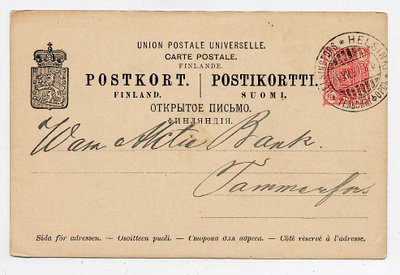 UNION POSTALE UNIVERSELLE.
CARTE POSTALE.
FINLANDE.
POSTKORT. POSTIKORTTI.
FINLAND. SUOMI.
ОТКРЫТОЕ ПИСЬМО.
ФИНЛЯНДІЯ.
Wasa Aktie Bank.
Tammerfors
Sida för adressen. — Osoitteen puoli. — Сторона для адреса. — Côté réservé à l'adresse.